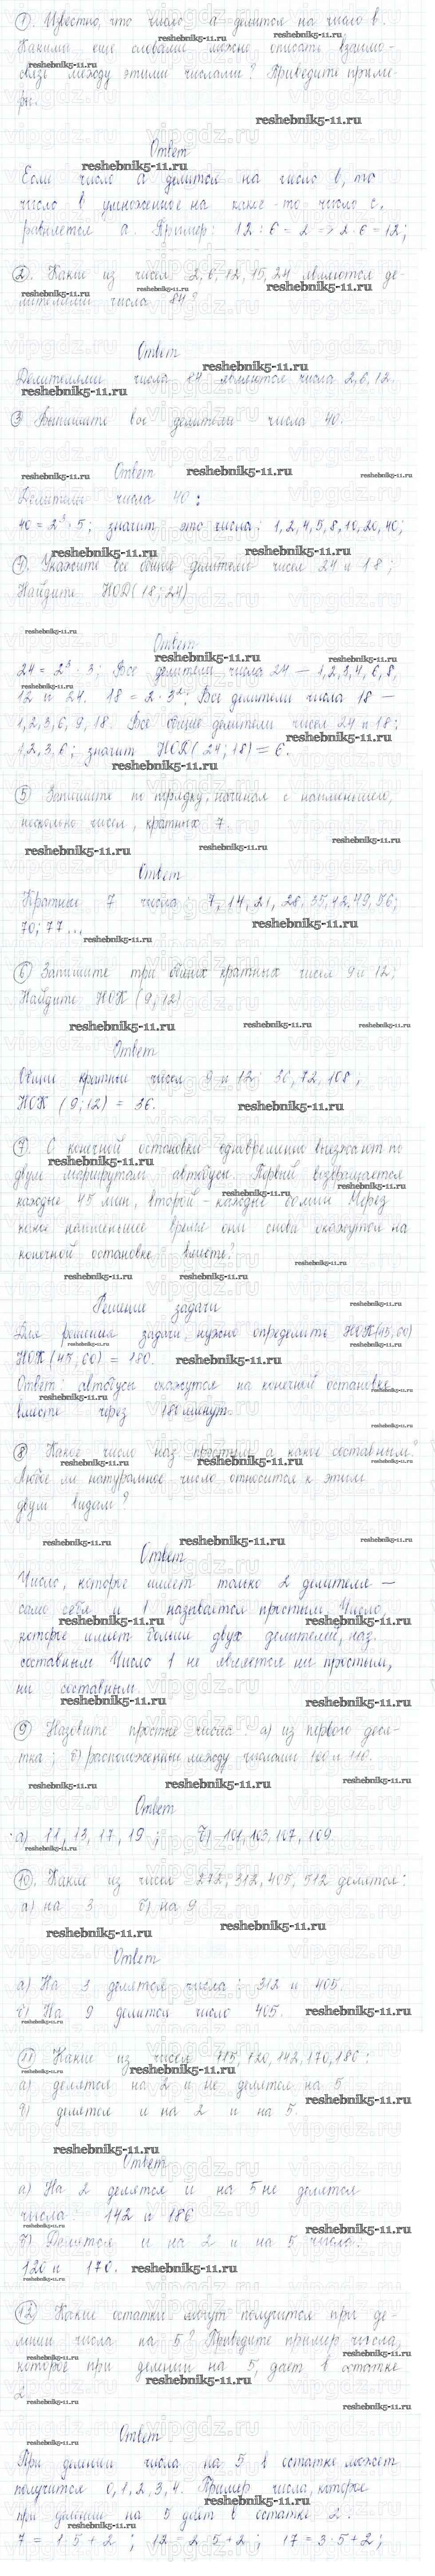 1 Известно, что число a делится на число b.
Какими еще словами можно описать взаимо-
связь между этими числами? Приведите приме-
ры.
reshebnik5-11.ru
Ответ
Если число a делится на число b, то
число b умноженное на какое-то число c,
равняется a. Пример: 12 : 6 = 2 => 2 · 6 = 12;
2. Какие из чисел 2, 6, 12, 15, 24 являются де-
лителями числа 84?
Ответ
Делителями числа 84 являются числа 2, 6, 12.
3 Выпишите все делители числа 40.
Ответ
Делители числа 40:
40 = 2³ · 5; значит это числа: 1, 2, 4, 5, 8, 10, 20, 40;
Укажите все общие делители чисел 24 и 18;
Найдите НОД (18; 24)
Ответ
24 = 2³ · 3; Все делители числа 24 — 1, 2, 3, 4, 6, 8,
12 и 24. 18 = 2 · 3²; Все делители числа 18 —
1, 2, 3, 6, 9, 18. Все общие делители чисел 24 и 18:
1, 2, 3, 6; значит НОД (24; 18) = 6.
5 Запишите по порядку, начиная с наименьшего,
несколько чисел, кратных 7.
Ответ
Кратны 7 числа: 7, 14, 21, 28, 35, 42, 49, 56;
70; 77...
6 Запишите три общих кратных чисел 9 и 12;
Найдите НОК (9; 12)
Ответ
Общие кратные чисел 9 и 12: 36, 72, 108;
НОК (9; 12) = 36.
7. С конечной остановки одновременно выезжают по
двум маршрутам автобусы. Первый возвращается
каждые 45 мин, второй - каждые 60 мин. Через
какое наименьшее время они снова окажутся на
конечной остановке вместе?
Решение задачи
Для решения задачи, нужно определить НОК (45, 60)
НОК (45, 60) = 180.
Ответ: автобусы окажутся на конечной остановке
вместе через 180 минут.
8 Какое число наз. простым, а какое составным?
Любое ли натуральное число относится к этим
двум видам?
Ответ
Число, которое имеет только 2 делителя —
само себя и 1 называется простым. Число,
которое имеет больше двух делителей, наз.
составным. Число 1 не является ни простым,
ни составным.
9 Назовите простые числа: а) из первого деся-
тка; б) расположенные между числами 100 и 110.
Ответ
а) 11, 13, 17, 19; б) 101, 103, 107, 109.
10. Какие из чисел 272, 312, 405, 512 делятся:
а) на 3 б) на 9
Ответ
а) На 3 делятся числа: 312 и 405.
б) На 9 делится число 405.
11 Какие из чисел 115, 120, 142, 170, 180:
а) делятся на 2 и не делятся на 5
б) делятся и на 2 и на 5.
Ответ
а) На 2 делятся и на 5 не делятся
числа: 142 и 186
б) Делятся и на 2 и на 5 числа:
120 и 170.
12 Какие остатки могут получится при де-
лении числа на 5? Приведите пример числа,
которое при делении на 5, дает в остатке
2.
Ответ
При делении числа на 5 в остатке может
получится 0, 1, 2, 3, 4. Пример числа, которое
при делении на 5 дает в остатке 2:
7 = 1 · 5 + 2; 12 = 2 · 5 + 2; 17 = 3 · 5 + 2;